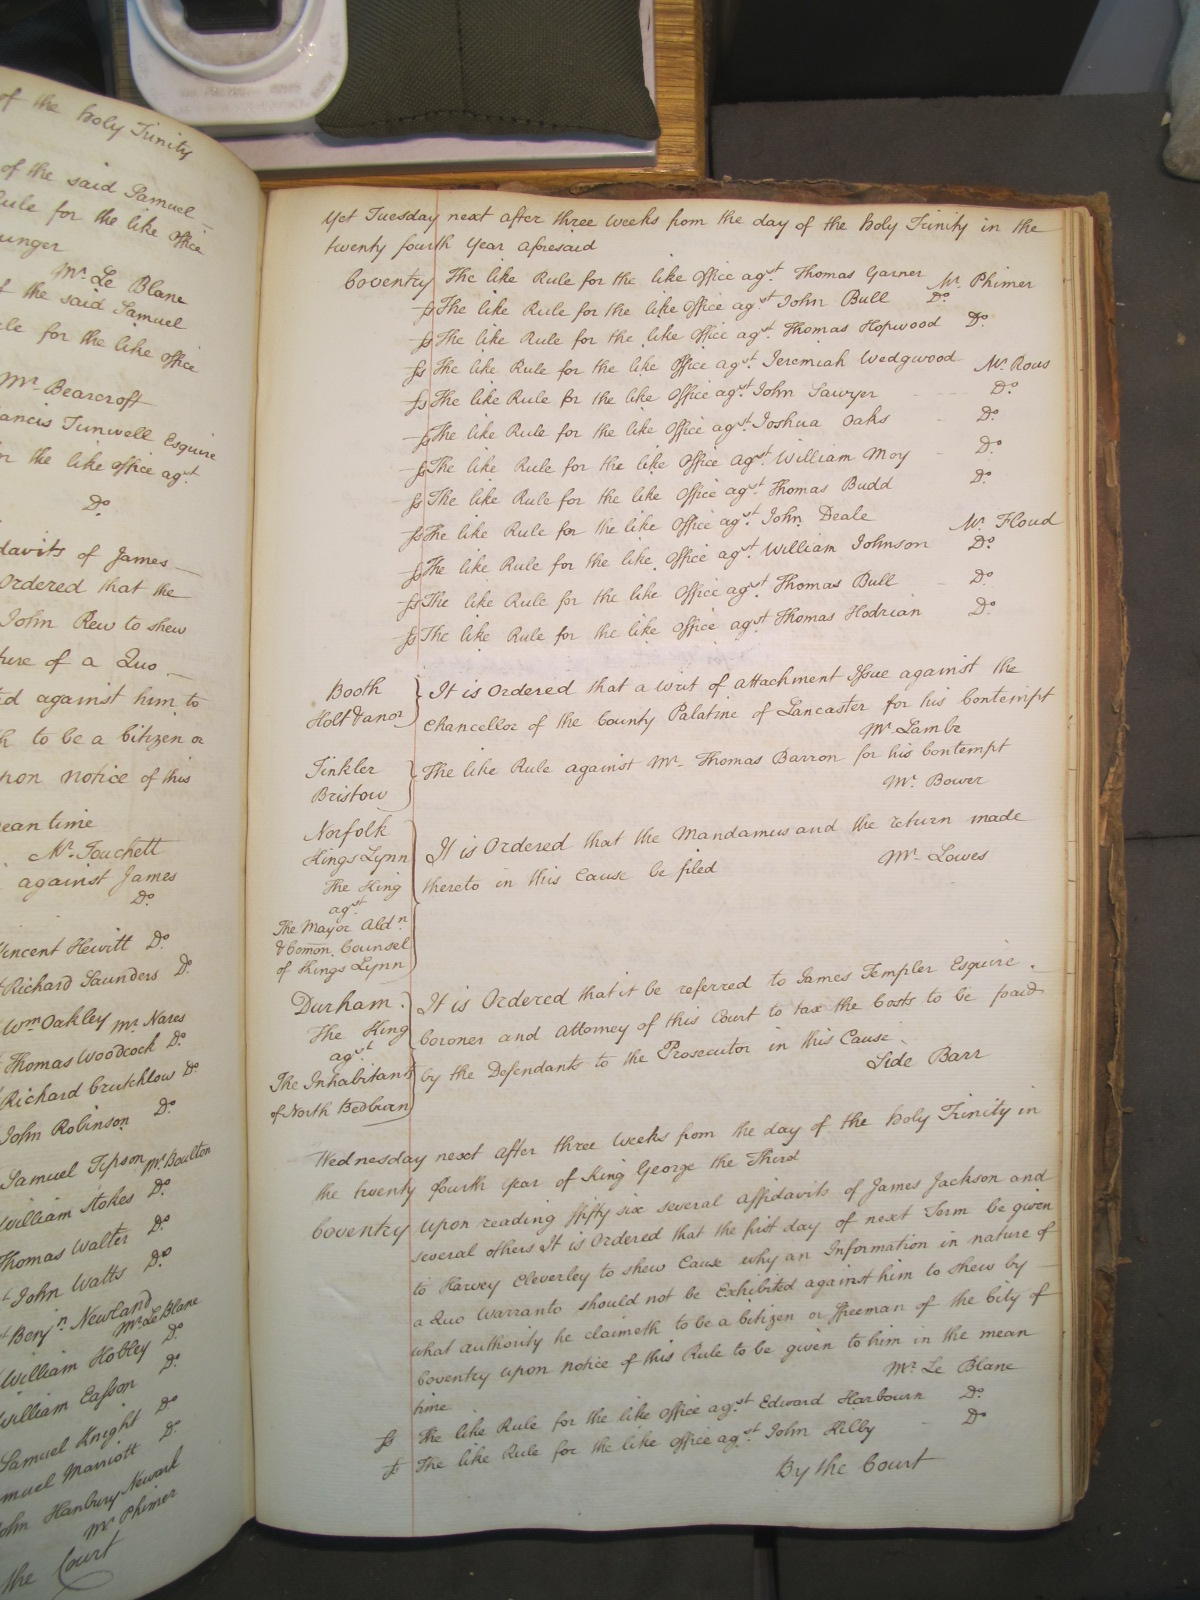 of the holy Trinity
of the said Samuel
Rule for the like Office
unger
Mr. Le Blane
f the said Samuel
ule for the like office
Mr. Bearcroft
ancis Tunwell Esquire
n the like office agst.
Do.
davits of James
Ordered that the
John Rew to shew
ture of a Quo
ed against him to
th to be a Citizen or
pon notice of this
ean time
Mr. Touchett
against James
Do.
Vincent Hewitt Do.
Richard Saunders Do.
Wm Oakley Mr. Nares
Thomas Woodcock Do.
Richard Crutchlow Do.
John Robinson Do.
Samuel Tipson Mr. Boulton
William Stokes Do.
Thomas Walter Do.
John Watts Do.
Benjn. Newland
Mr. Le Blane
William Hobley Do.
William Easson Do.
Samuel Knight Do.
muel Marriott Do.
ohn Hanbury Newark
Mr Phimer
the Court
Yet Tuesday next after three Weeks from the day of the holy Trinity in the
twenty fourth Year aforesaid
Coventry The like Rule for the like Office agst. Thomas Garner Mr. Phimer
ss The like Rule for the like Office agst John Bull Do.
ss The like Rule for the like Office agst. Thomas Hopwood Do.
ss The like Rule for the like Office agst. Jeremiah Wedgwood Mr. Rous
ss The like Rule for the like Office agst. John Sawyer Do.
ss The like Rule for the like Office agst. Joshua Oaks Do.
ss The like Rule for the like Office agst. William Moy Do.
ss The like Rule for the like Office agst. Thomas Budd Do.
ss The like Rule for the like Office agst. John Deale Mr. Floud
ss The like Rule for the like Office agst. William Johnson Do.
ss The like Rule for the like Office agst. Thomas Bull Do.
ss The like Rule for the like Office agst Thomas Hodrian Do.
Booth
Holt & anor
It is Ordered that a Writ of Attachment Issue against the
Chancellor of the County Palatine of Lancaster for his Contempt
Mr. Lambe
Tinkler
Bristow
The like Rule against Mr. Thomas Barron for his Contempt
Mr. Bower
Norfolk
Kings Lynn
The King
agst.
The Mayor Aldn.
& Comon Counsel
of Kings Lynn
It is Ordered that the Mandamus and the return made
thereto in this Cause be filed
Mr. Lowes
Durham
The King
agst.
The Inhabitants
of North Bedburn
It is Ordered that it be referred to James Templer Esquire
Coroner and Attorney of this Court to tax the Costs to be paid
by the Defendants to the Prosecutor in this Cause
Side Barr
Wednesday next after three Weeks from the day of the holy Trinity in
the twenty fourth Year of King George the Third
Coventry Upon reading ffifty six several Affidavits of James Jackson and
several others It is Ordered that the first day of next Term be given
to Harvey Cleverley to shew Cause why an Information in nature of
a Quo Warranto should not be Exhibited against him to shew by
what authority he claimeth to be a Citizen or ffreeman of the City of
Coventry upon notice of this Rule to be given to him in the mean
time
Mr. Le Blane
ss The like Rule for the like Office agst. Edward Harbourn Do.
ss The like Rule for the like Office agst. John Kilby Do
By the Court